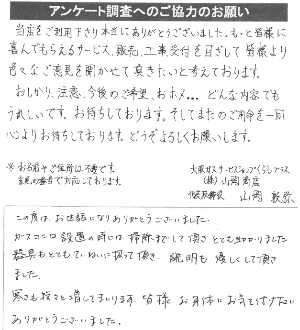 アンケート調査へのご協力のお願い
当店をご利用下さり本当にありがとうございました。もっと皆様に
喜んでもらえるサービス、販売、工事受付を目ざして皆様より
色々なご意見を聞かせて頂きたいと考えております。
おしかり、注意、今後のご希望、おホメ… どんな内容でも
うれしいです。お待ちしております。そしてまたのご用命を一同
心よりお待ちしております。どうぞよろしくお願いします。
※お名前やご住所は不要です。
大阪ガスサービスショップくらしプラス
(株)山岡商店
代表取締役 山岡
この度は、お世話になりありがとうございました。
ガスコンロ設置の時には、掃除までして頂きとても助かりました
器具もとてもていねいに扱って頂き、説明も優しくして頂き
ました。
寒さも段々と増してまいります。皆様 お身体にお気を付け下さい
ありがとうございました。